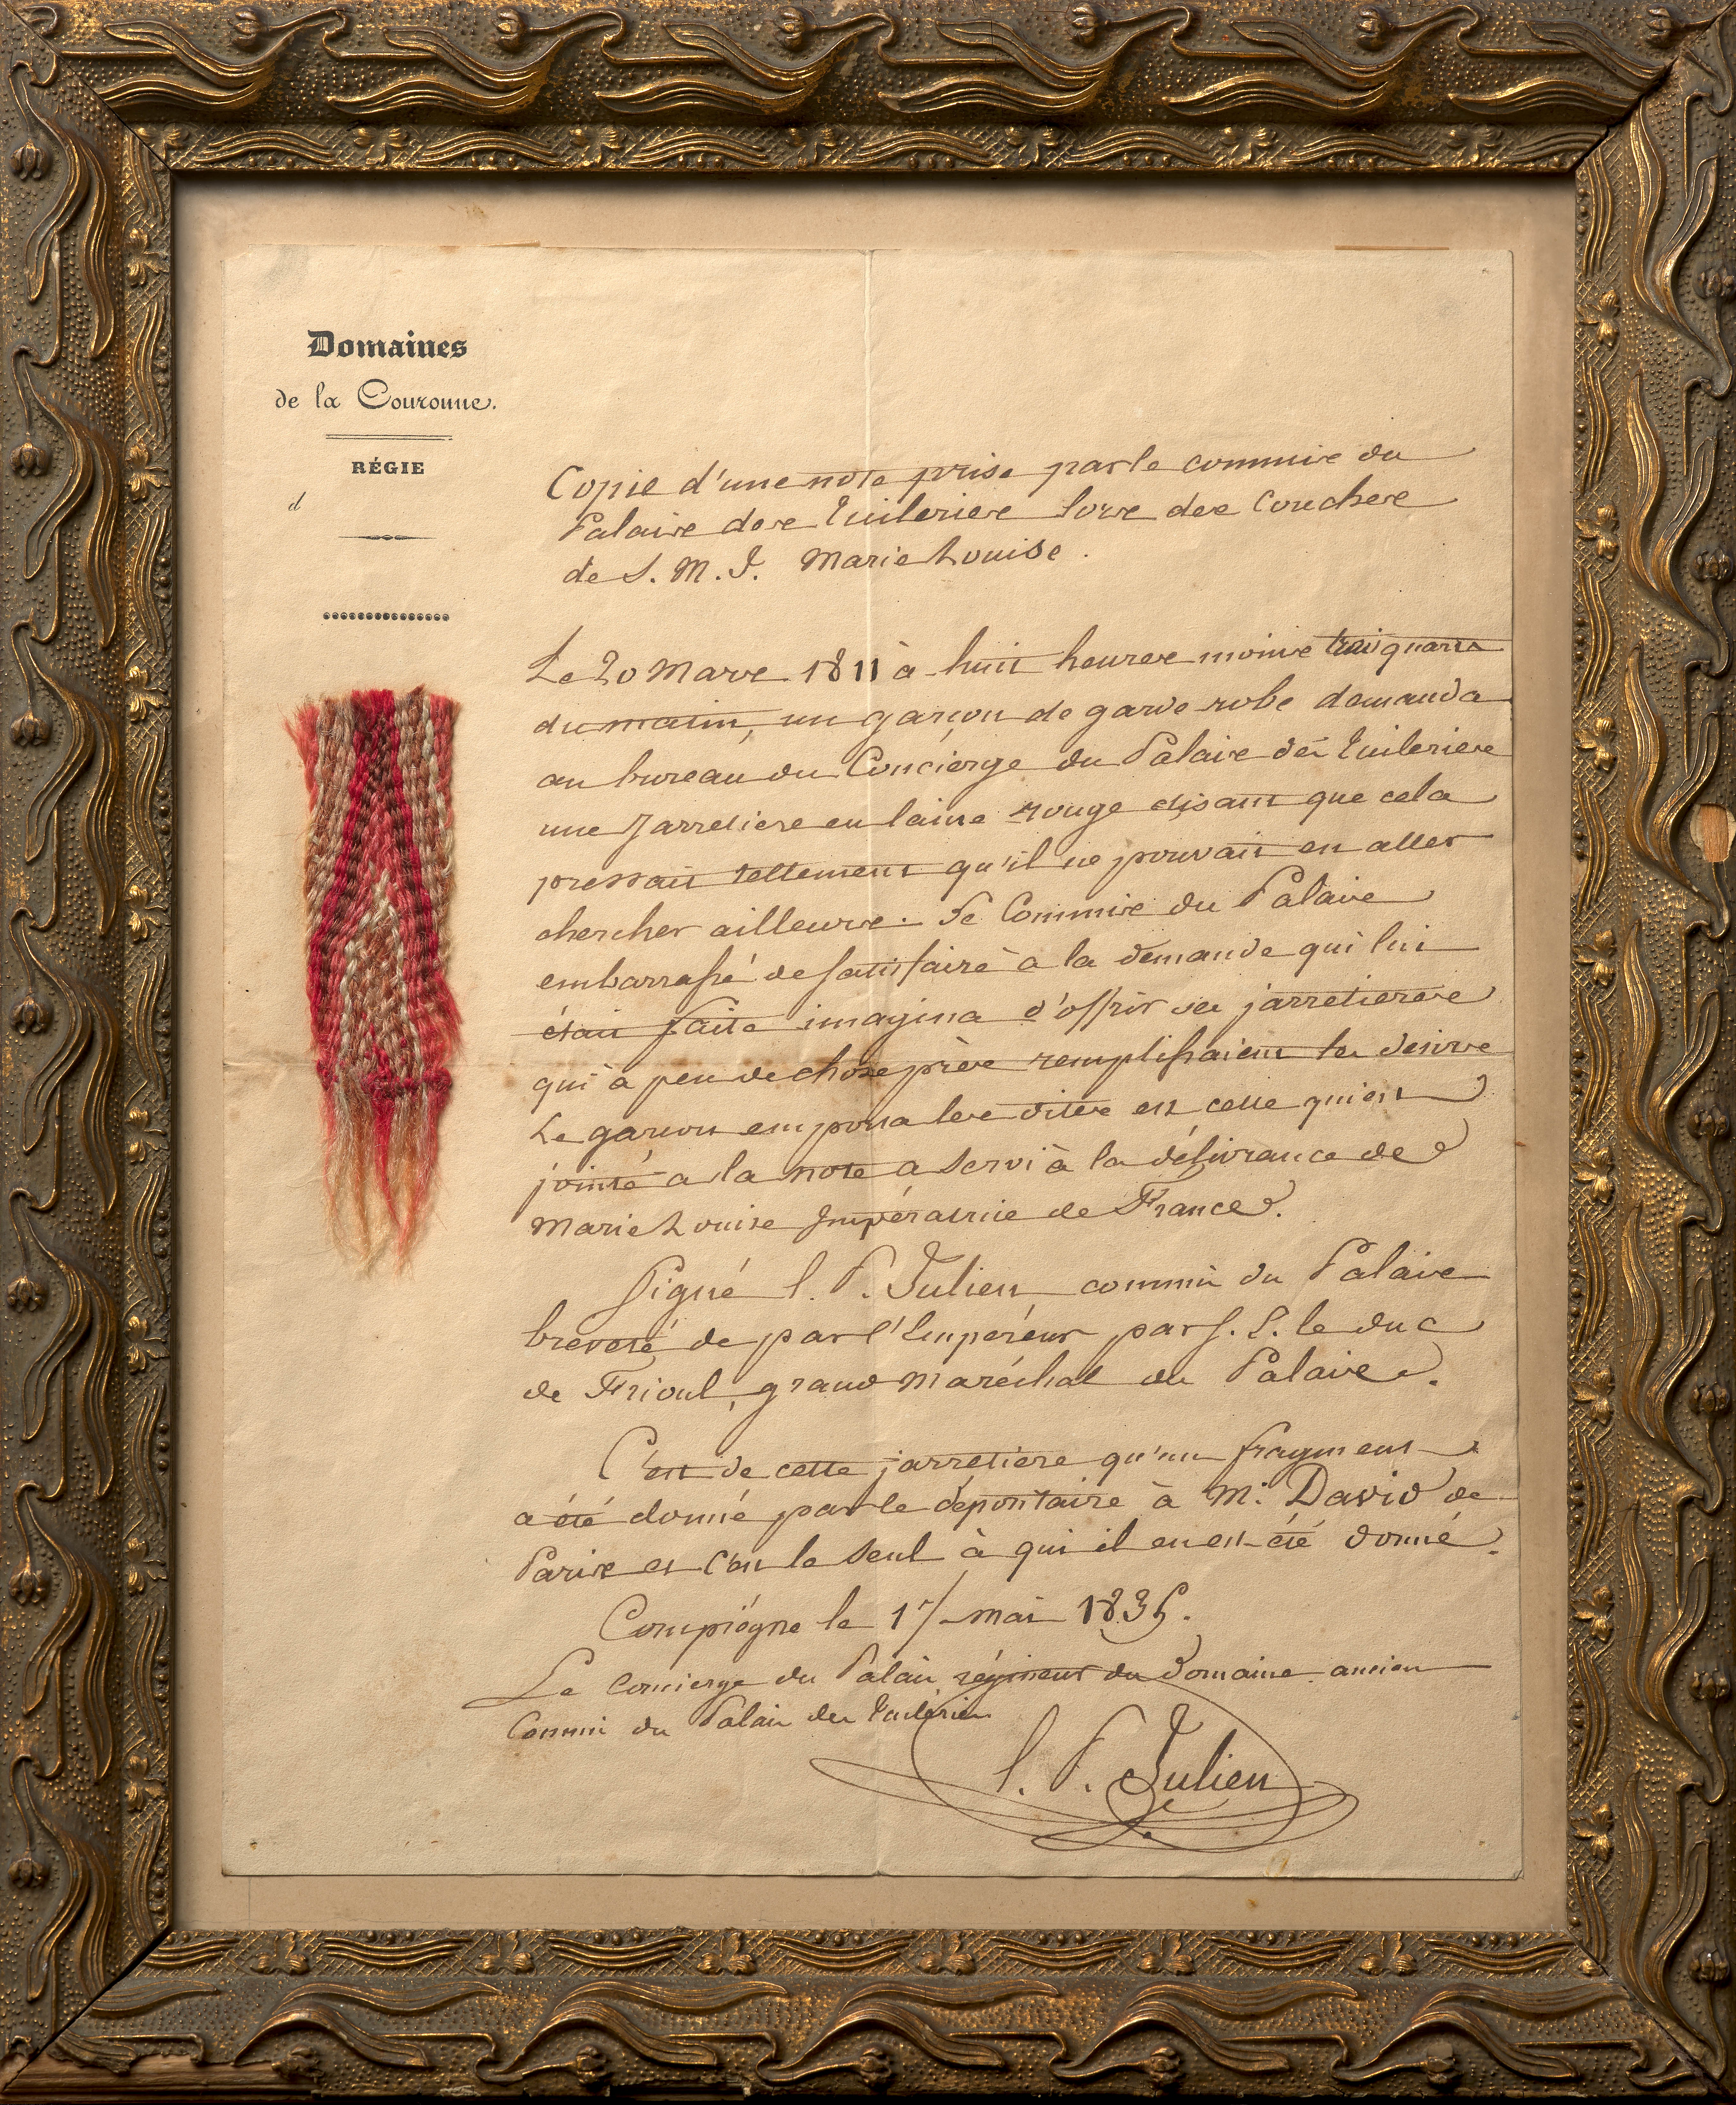 Domaines
de la Couronne.
RÉGIE
d
Copie d'une note prise par le commis du
Palais des Tuileries lors des Couches
de S. M. I. Marie Louise.
Le 20 Mars 1811 à huit heures moins trois quarts
du matin, un garçon de garde robe demanda
au bureau du Concierge du Palais des Tuileries
une Jarretiere en laine rouge disant que cela
pressait tellement qu'il ne pouvait en aller
chercher ailleurs. Le Commis du Palais
embarrassé de satisfaire à la demande qui lui
était faite imagina d'offrir ses jarretieres
qui à peu de chose près remplissaient le desir
Le garçon emporta les dites et celle qui est
jointe a la note a servi à la délivrance de
Marie Louise Impératrice de France.
Signé l. P. Julien commis du Palais
breveté de par l'Empereur par S. E. le duc
de Frioul, grand Maréchal du Palais.
C'est de cette jarretiere qu'un fragment
a été donné par le dépositaire à Mr. David de
Paris et c'est le seul à qui il en est été donné.
Compiègne le 17 mai 1835.
Le Concierge du Palais régisseur du Domaine ancien
Commis du Palais des Tuileries
l. P. Julien